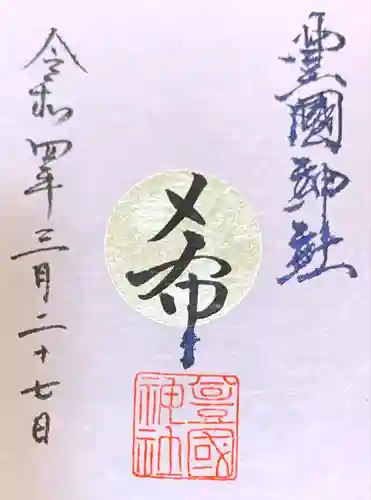 豊國神社
希
令和四年三月二十七日
豊國
神社